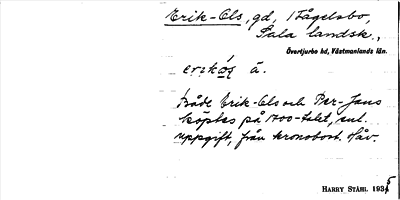 Erik-Ols, gd, i Fågelsbo,
Sala landsk.,
Övertjurbo hd, Västmanlands län.
å.
Både Erik-Ols och Per-Jans
köptes på 1700-talet, enl.
uppgift, från kronobost. Håv.
HARRY STÅHL 1935